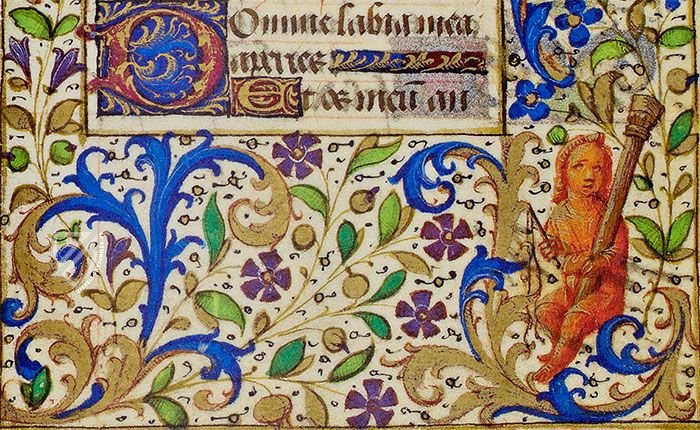 Domine labia mea
aperies
Et os meu an